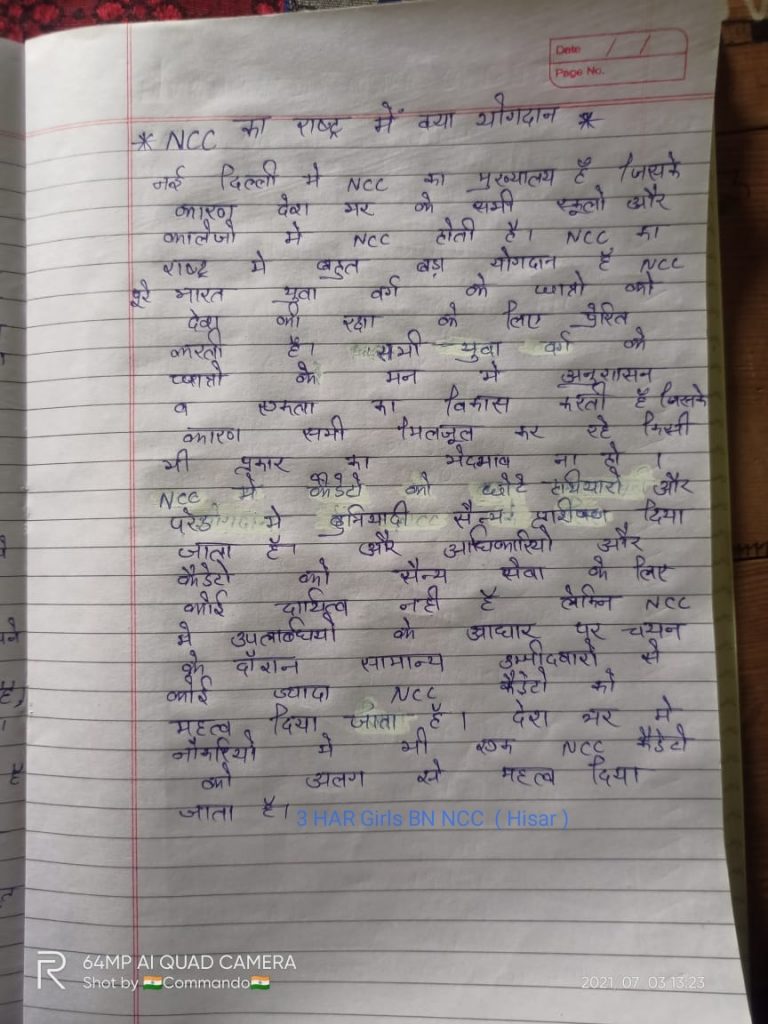 Date / /
Page No.
* NCC का राष्ट्र में क्या योगदान *
नई दिल्ली मे NCC का मुख्यालय है जिसके
कारण देश भर के सभी स्कूलो और
कालेजो मे NCC होती है। NCC का
राष्ट्र मे बहुत बड़ा योगदान है NCC
पूरे भारत युवा वर्ग के छात्रो को
देश की रक्षा के लिए प्रेरित
करती है। सभी युवा वर्ग के
छात्रो के मन मे अनुशासन
व एकता का विकास करती है जिसके
कारण सभी मिलजूल कर रहे किसी
भी प्रकार का भेदभाव ना हो।
NCC मे कैडेटो को छोटे हथियारो और
परेड मे बुनियादी सैन्य प्रशिक्षण दिया
जाता है। और अधिकारियो और
कैडेटो को सैन्य सेवा के लिए
कोई दायित्व नही है लेकिन NCC
मे उपलब्धियो के आधार पर चयन
के दौरान सामान्य उम्मीदवारो से
कोई ज्यादा NCC कैडेटो को
महत्व दिया जाता है। देश भर मे
नौकरियो मे भी एक NCC कैडेटो
को अलग से महत्व दिया
जाता है।
3 HAR Girls BN NCC ( Hisar )
64MP AI QUAD CAMERA
Shot by 🇮🇳Commando🇮🇳
2021.07 03:13.23